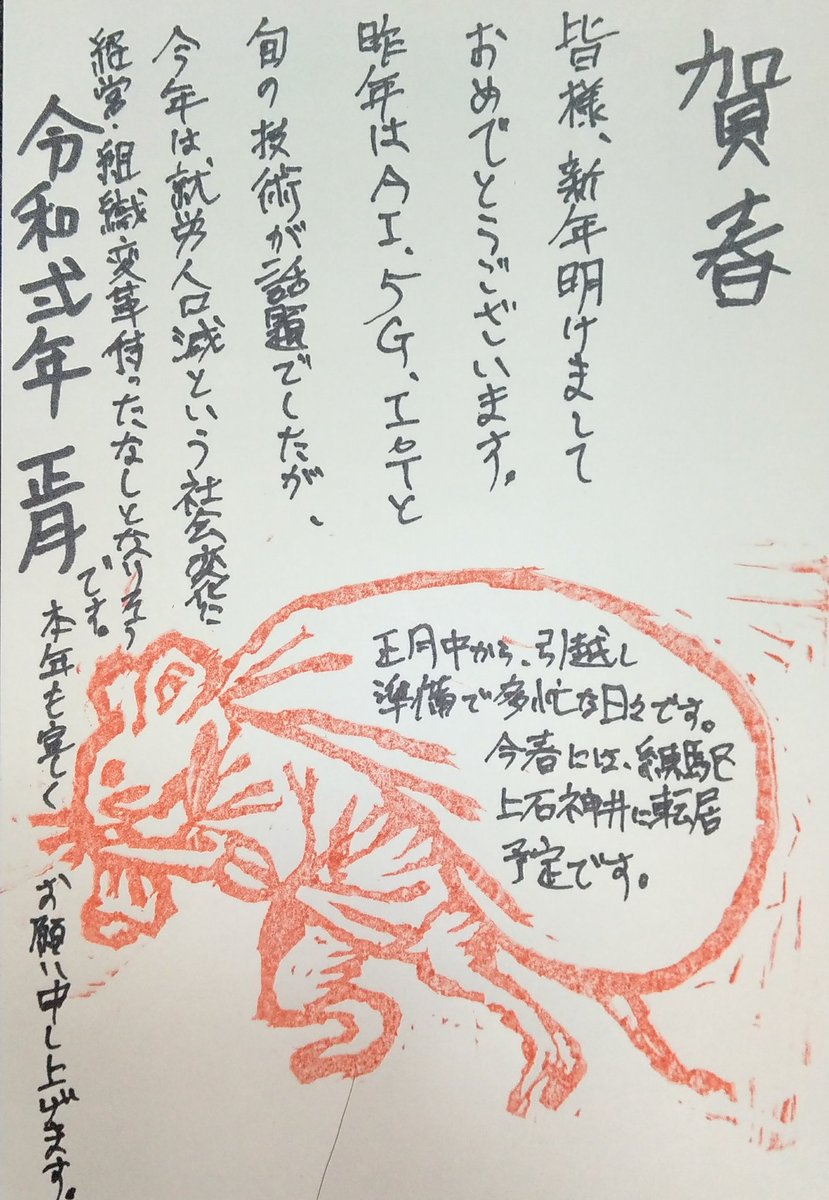 賀春
皆様、新年明けまして
おめでとうございます。
昨年はAI、5G、IoTと
旬の技術が話題でしたが、
今年は、就労人口減という社会変化に
経営・組織変革待ったなしとなりそう
です。
令和弍年 正月
本年も宜しく お願い申し上げます。
正月中から、引越し
準備で多忙な日々です。
今春には、練馬区
上石神井に転居
予定です。